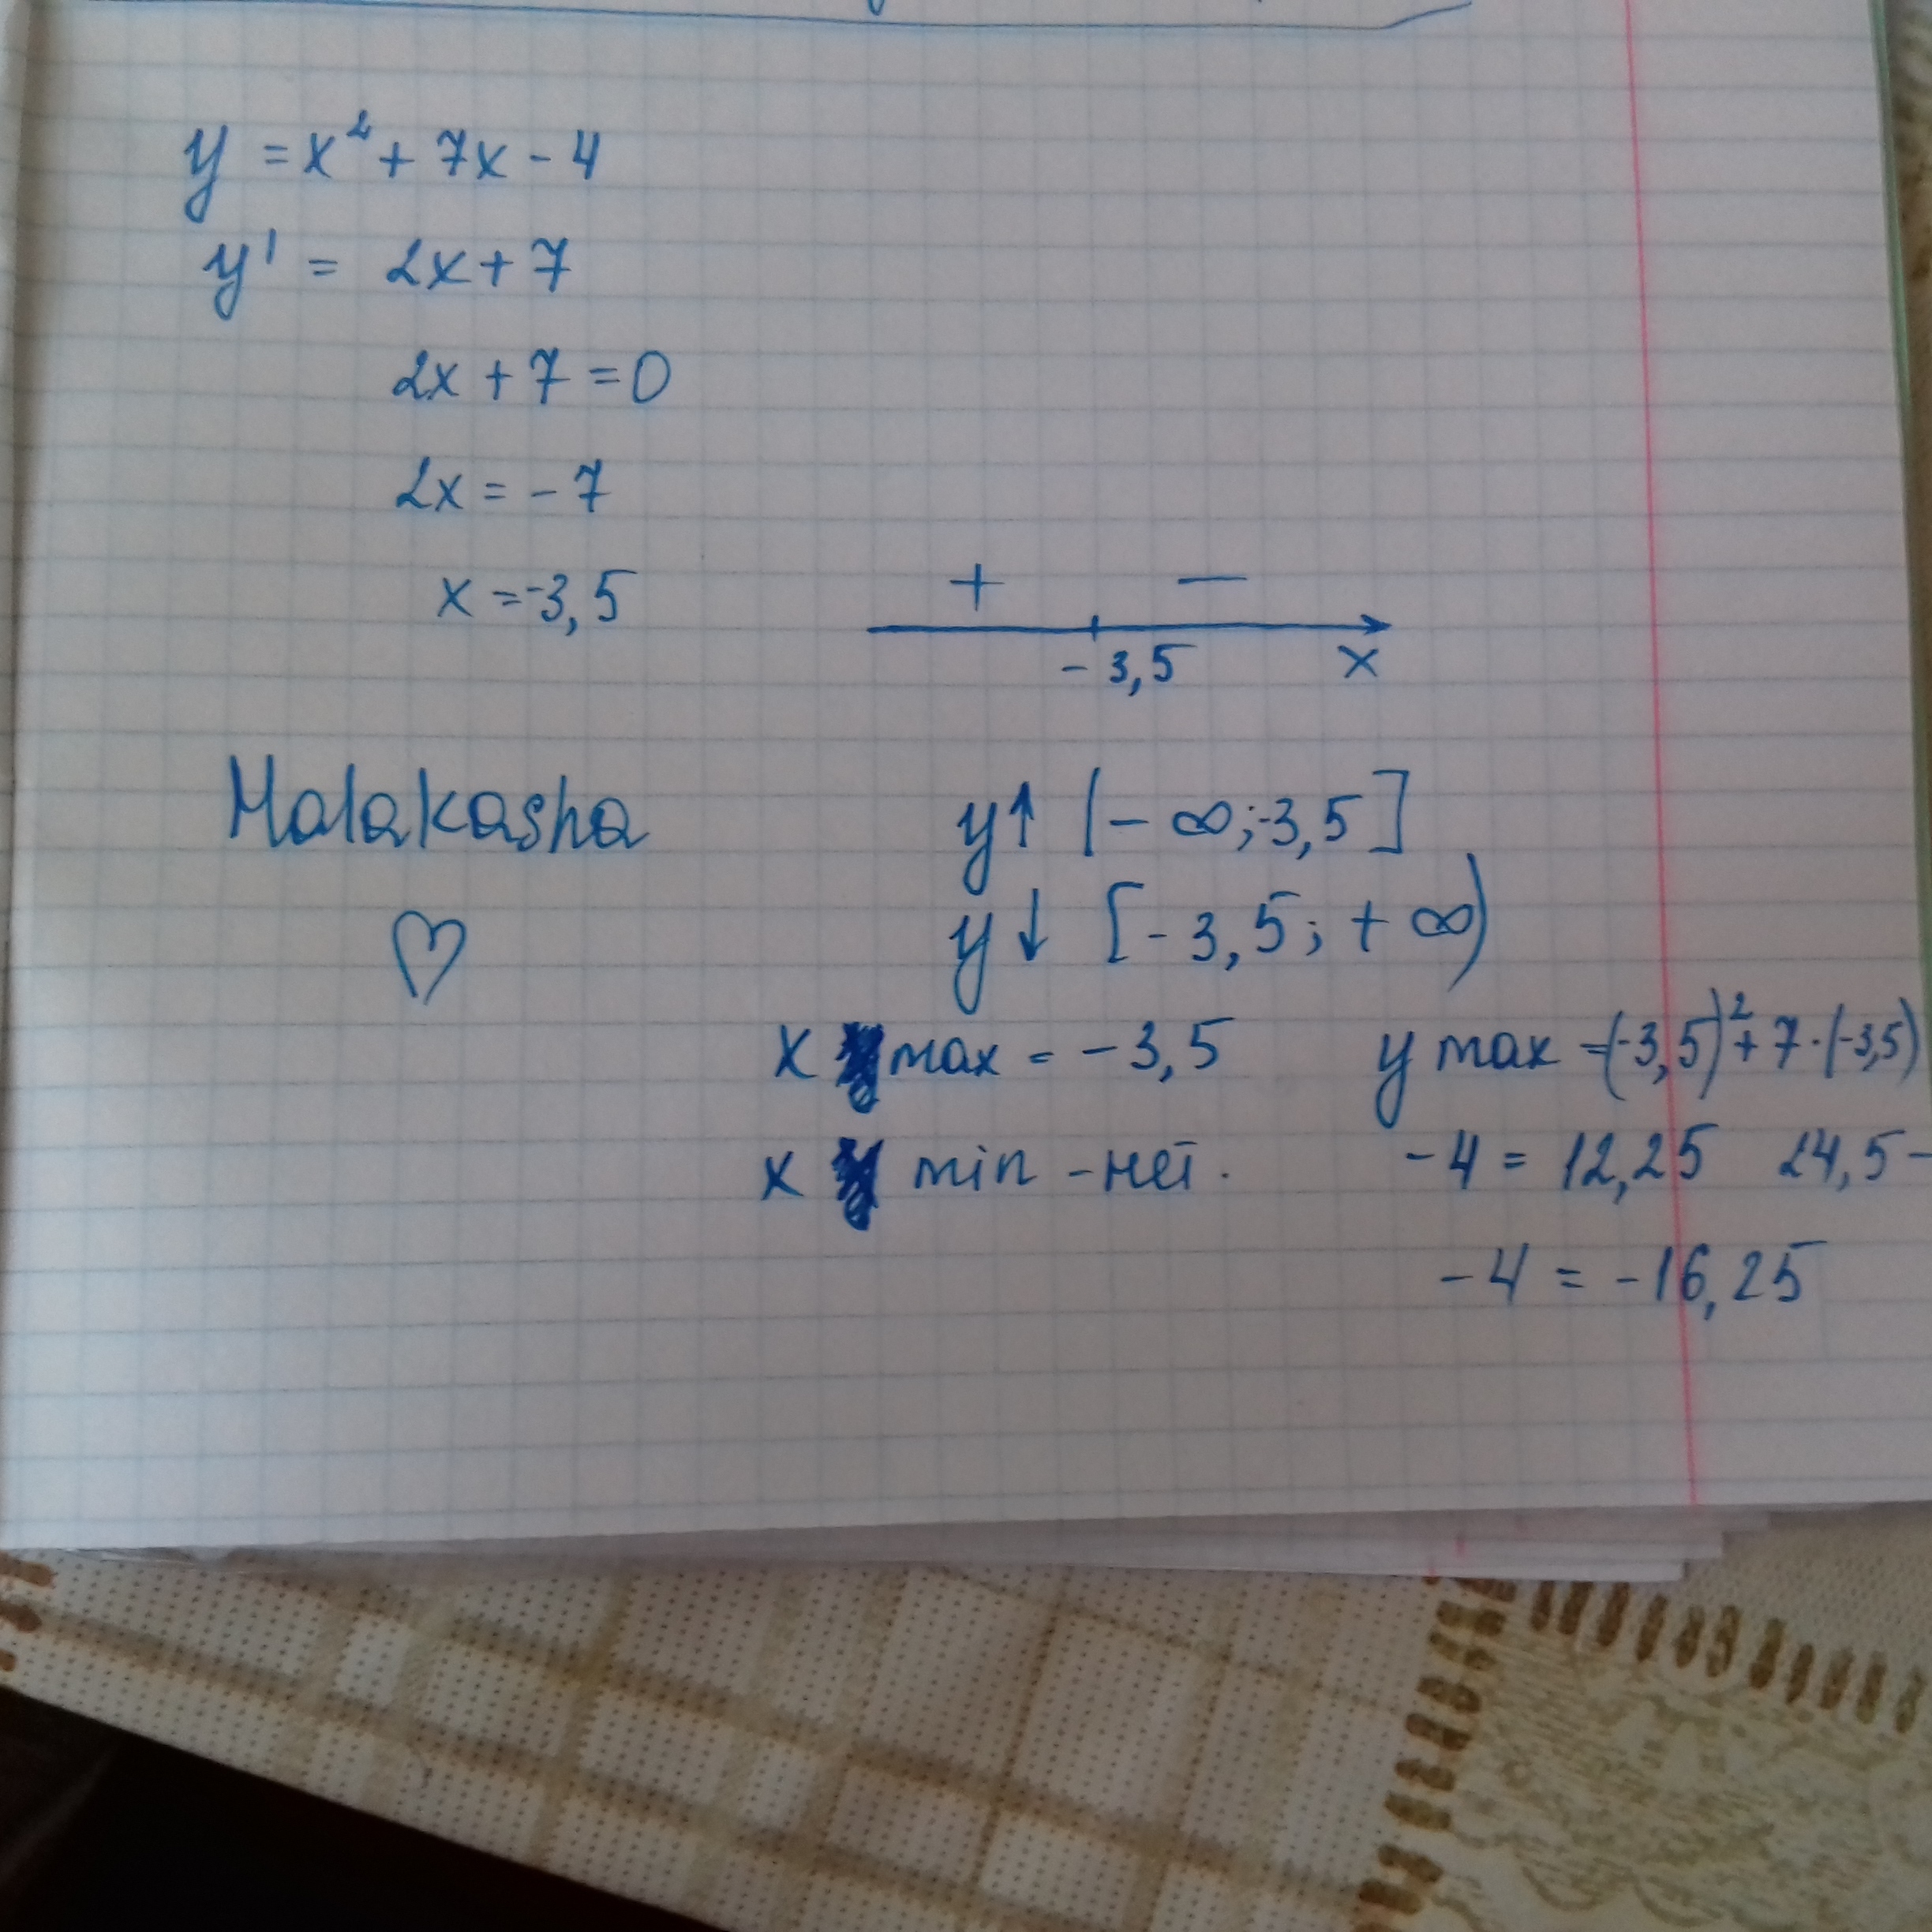 y = x² + 7x - 4
y' = 2x + 7
2x + 7 = 0
2x = - 7
x = -3,5
+ —
- 3,5 x
Malakasha
♡
y↑ (- ∞; -3,5]
y↓ [- 3,5; + ∞)
x max = - 3,5
x min - нет.
y max = (-3,5)² + 7 · (-3,5)
- 4 = 12,25 24,5 -
- 4 = - 16,25